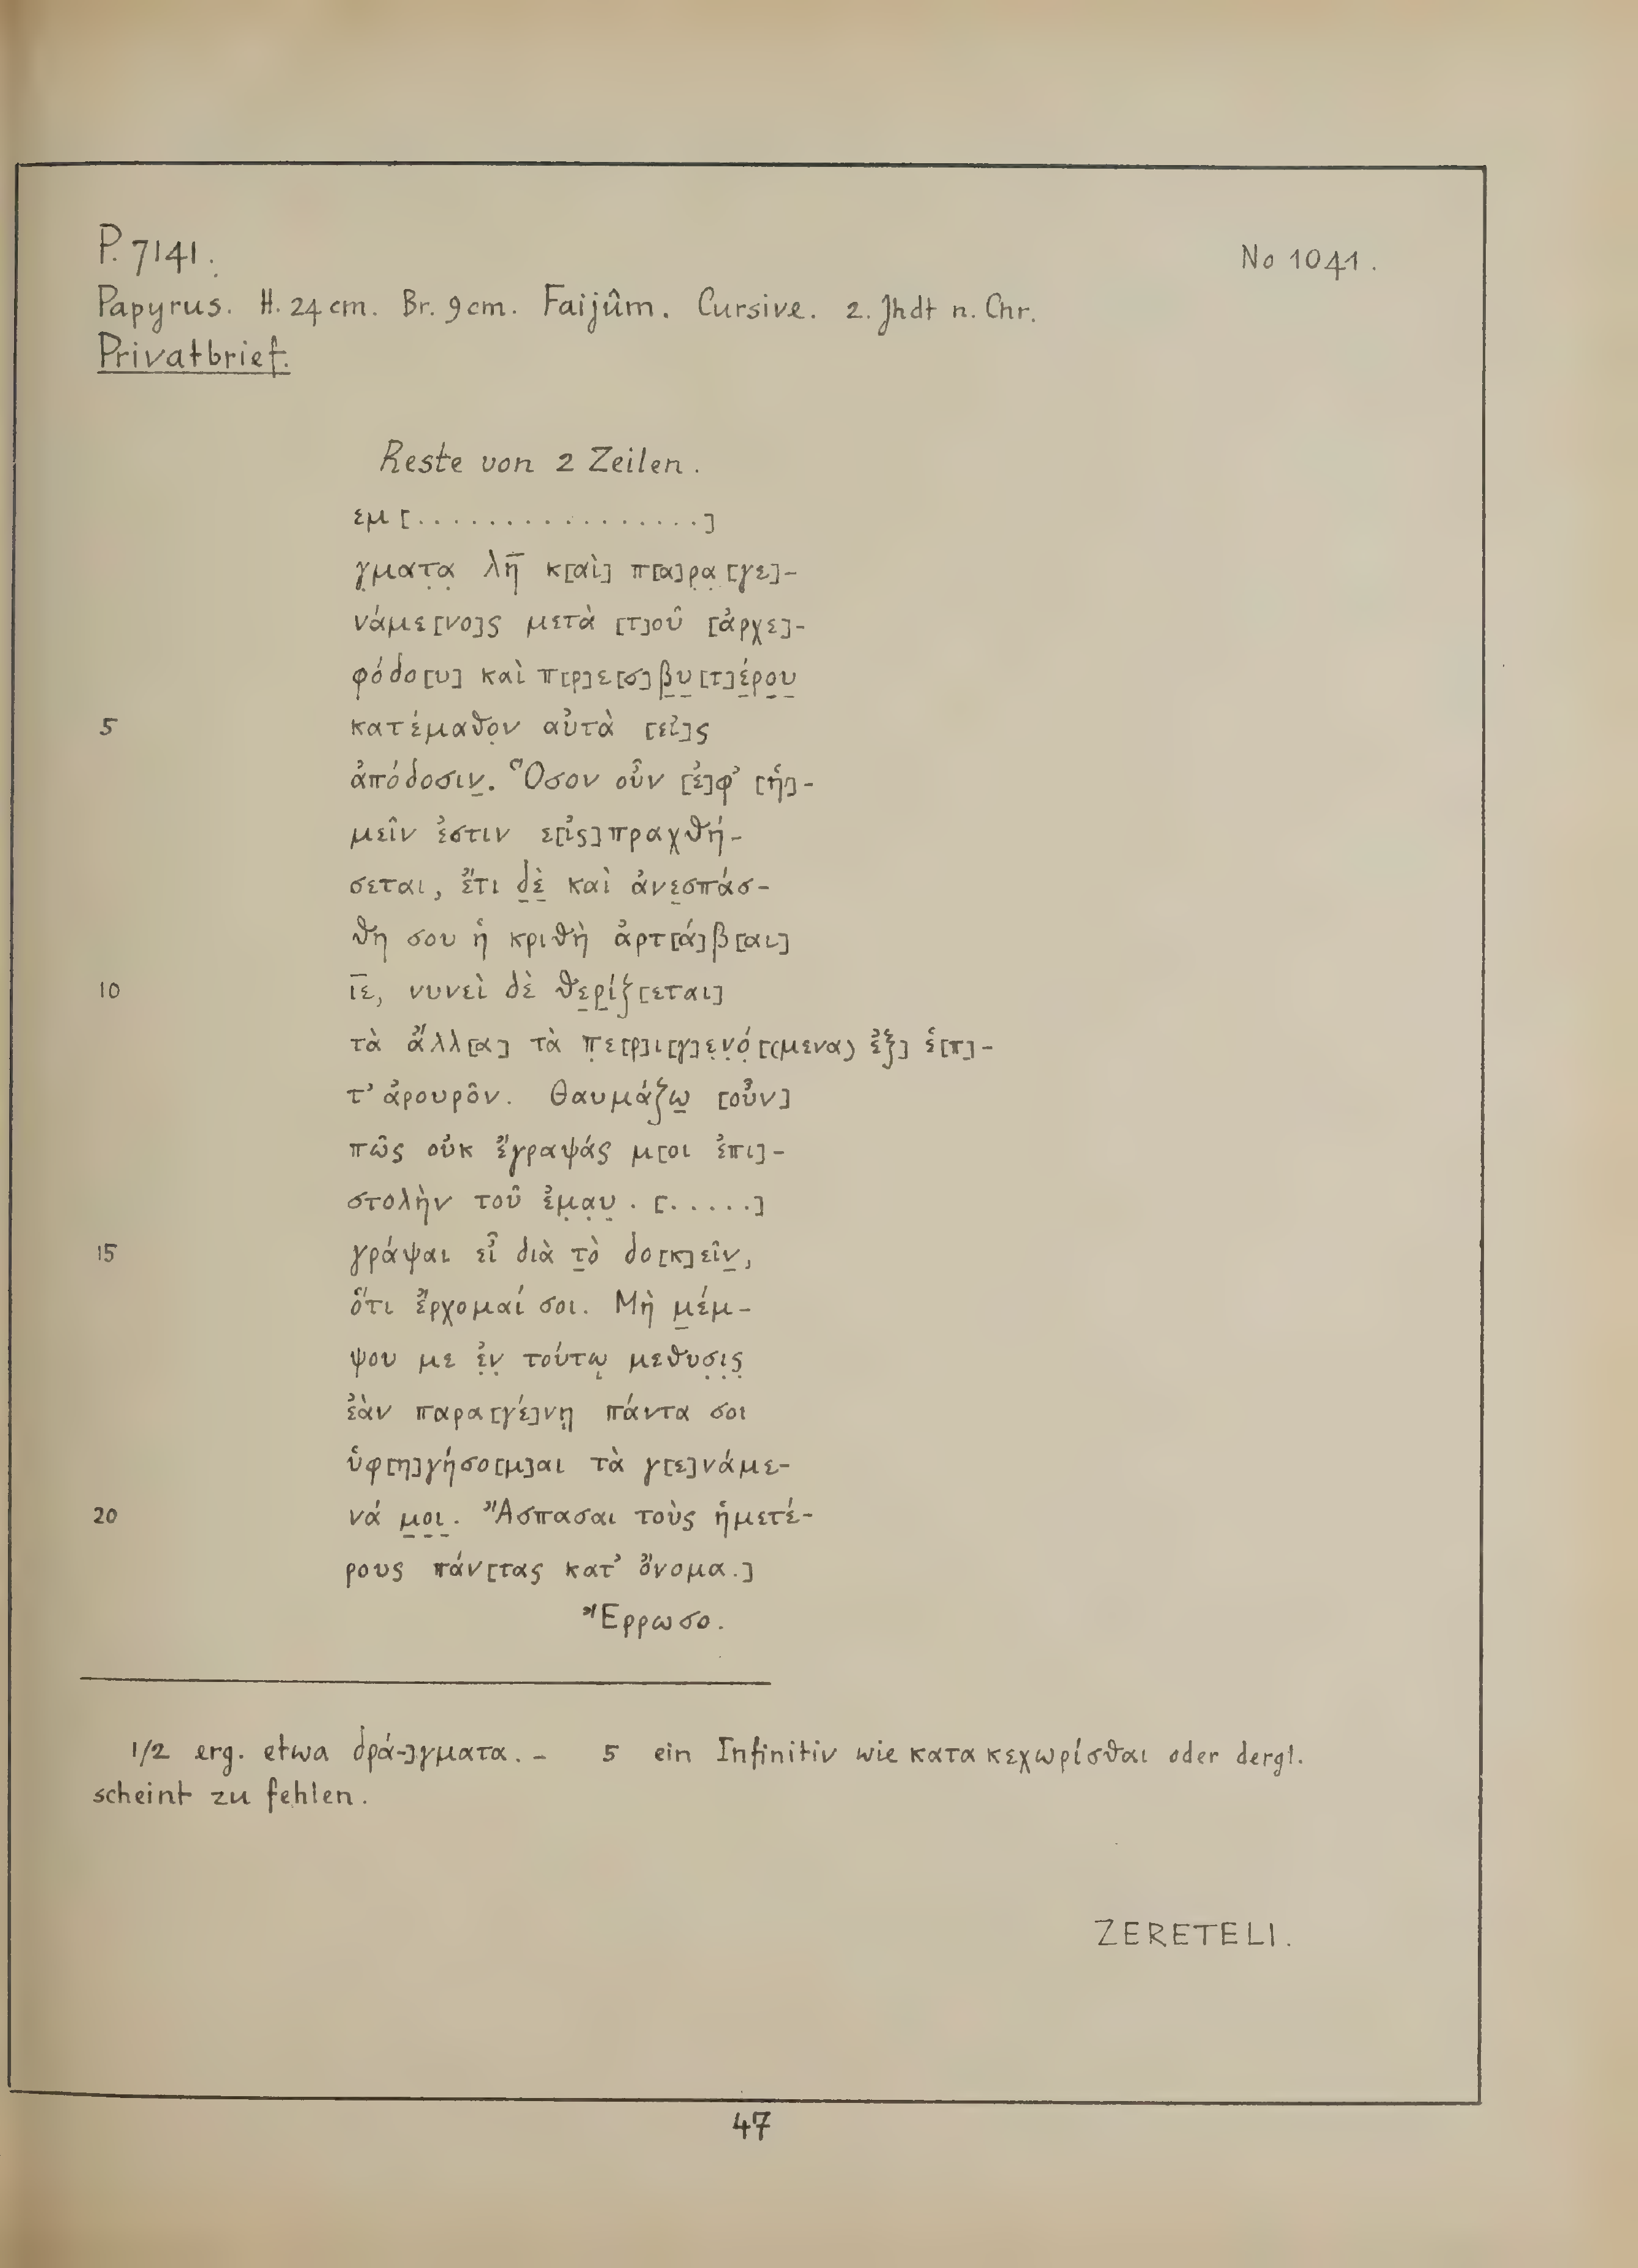 P. 7141.
No 1041.
Papyrus. H. 24 cm. Br. 9 cm. Faijûm. Cursive. 2. Jhdt n. Chr.
Privatbrief.
Reste von 2 Zeilen.
εμ [. . . . . . . . . . . . . . . . .]
γ̣ματ̣α̣ λη̅ κ[αὶ] π[α]ρ̣α̣ [γε]-
νάμε[νο]ς μετὰ [τ]οῦ [ἀρχε]-
φόδο[υ] καὶ π[ρ]ε[σ]β̲υ̲[τ]έ̲ρ̲ο̲υ̲
5 κατέμαθο̣ν αὐτὰ [εἰ]ς
ἀπόδοσιν̲. Ὅσον οὖν [ἐ]φ’ [ἡ]-
μεῖν ἐστιν ε[ἰς]πραχθή-
σεται, ἔτι δ̲ὲ̲ καὶ ἀνε̲σπάσ-
θη σου ἡ κριθὴ ἀρτ[ά]β[αι]
10 ι̅ε, νυνεὶ δὲ θε̲ρ̲ίζ[εται]
τὰ ἄλλ[α] τὰ π̣ε[ρ]ι[γ]ε̣ν̣ό̣[(μενα) ἐξ] ἑ[π]-
τ’ ἀρουρôν. Θαυμάζω̲ [οὖν]
πῶς οὐκ ἔγραψάς μ[οι ἐπι]-
στολὴν τοῦ ἐμ̣α̣υ̣ . [. . . . .]
15 γράψαι εἶ διὰ τ̲ὸ δο[κ]εῖν̲,
ὅτι ἔρχομαί σοι. Μὴ μ̲έμ-
ψου με ἐ̣ν̣ τούτῳ μεθυσ̣ι̣ς̣
ἐὰν παρα[γέ]νῃ πάντα σοι
ὑφ[η]γήσο[μ]αι τὰ γ[ε]νάμε-
20 νά μ̲ο̲ι̲. Ἄσπασαι τοὺς ἡμετέ-
ρους πάν[τας κατ’ ὄνομα.]
Ἔρρωσο.
1/2 erg. etwa δρά-]γματα. – 5 ein Infinitiv wie κατακεχωρίσθαι oder dergl.
scheint zu fehlen.
ZERETELI.
47